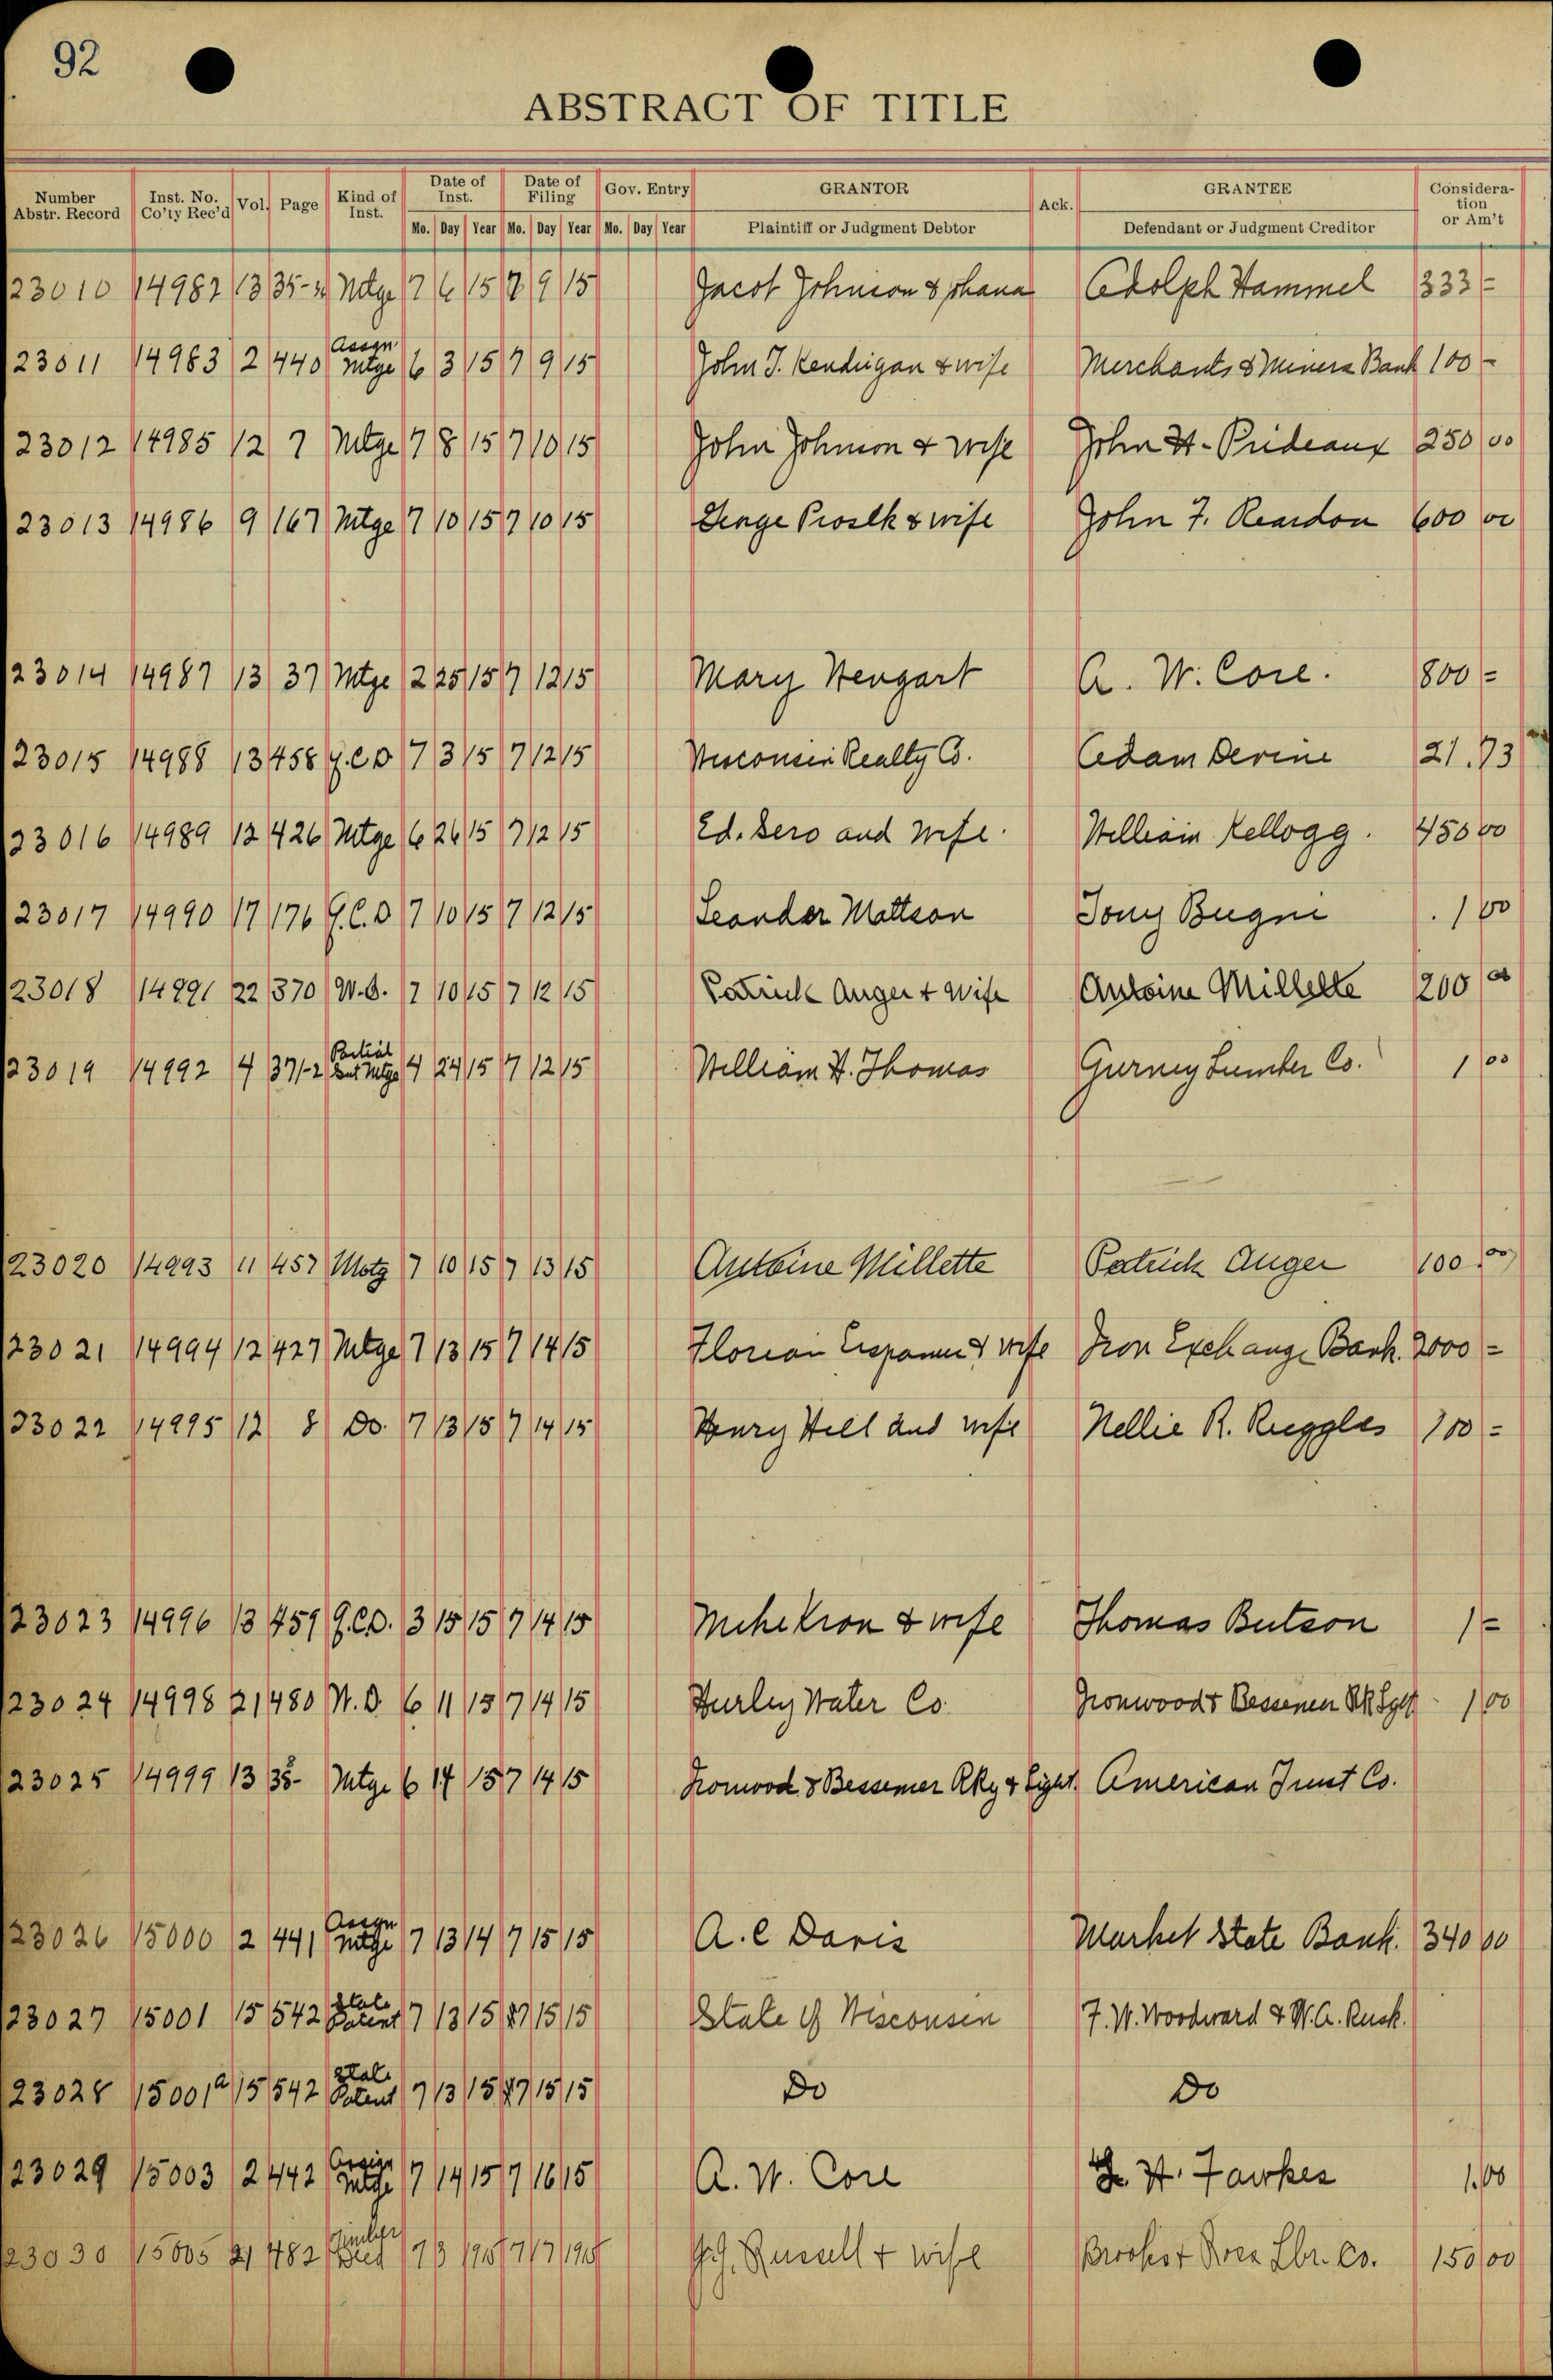 92
ABSTRACT OF TITLE
Number Abstr. Record Inst. No. Co'ty Rec'd Vol. Page Kind of Inst. Date of Inst. Date of Filing Gov. Entry GRANTOR Ack. GRANTEE Consideration or Am't
Mo. Day Year Mo. Day Year Mo. Day Year Plaintiff or Judgment Debtor Defendant or Judgment Creditor
23010 14982 13 35- Mtge 7 6 15 7 9 15 Jacob Johnson & Adolph Hammel 333 =
23011 14983 2 440 Assgn Mtge 6 3 15 7 9 15 John T. Kendrigan & wife Merchants & Miners Bank 100 -
23012 14985 12 7 Mtge 7 8 15 7 10 15 John Johnson & wife John H. Prideaux 250 00
23013 14986 9 167 Mtge 7 10 15 7 10 15 & wife John F. Reardon 600 00
23014 14987 13 37 Mtge 2 25 15 7 12 15 Mary Wengart A. W. Core. 800 =
23015 14988 13 458 Q.C.D 7 3 15 7 12 15 Wisconsin Realty Co. Adam Devine 21.73
23016 14989 12 426 Mtge 6 26 15 7 12 15 Ed. Sero and wife. William Kellogg. 450 00
23017 14990 17 176 Q.C.D 7 10 15 7 12 15 Leander Mattson Tony Bugni 1 00
23018 14991 22 370 W.D. 7 10 15 7 12 15 Patrick Auger + wife Antoine Millette 200 00
23019 14992 4 371-2 Partial Mtge 4 24 15 7 12 15 William H. Thomas Gurney Lumber Co. 1 00
23020 14993 11 457 Motg 7 10 15 7 13 15 Antoine Millette Patrick Auger 100.00
23021 14994 12 427 Mtge 7 13 15 7 14 15 Florian & wife Iron Exchange Bank. 2000 =
23022 14995 12 8 Do. 7 13 15 7 14 15 Henry Hill and wife Nellie R. Ruggles 700 =
23023 14996 13 459 Q.C.D. 3 15 15 7 14 15 & wife Thomas Butson 1 =
23024 14998 21 480 W.D. 6 11 15 7 14 15 Hurley Water Co. Ironwood & Bessemer 1 00
23025 14999 13 38- Mtge 6 14 15 7 14 15 Ironwood & Bessemer Rky & Light. American Trust Co.
23026 15000 2 441 Assgn Mtge 7 13 14 7 15 15 A. C Davis Market State Bank. 340 00
23027 15001 15 542 State Patent 7 13 15 7 15 15 State of Wisconsin F. W. Woodward & W. A. Rusk.
23028 15001a 15 542 State Patent 7 13 15 7 15 15 Do Do
23029 15003 2 442 Assign Mtge 7 14 15 7 16 15 A. W. Core H. Fawkes 1.00
23030 15005 21 482 Timber Deed 7 3 1915 7 17 1915 Russell + wife Brooks + Ross Lbr. Co. 150 00